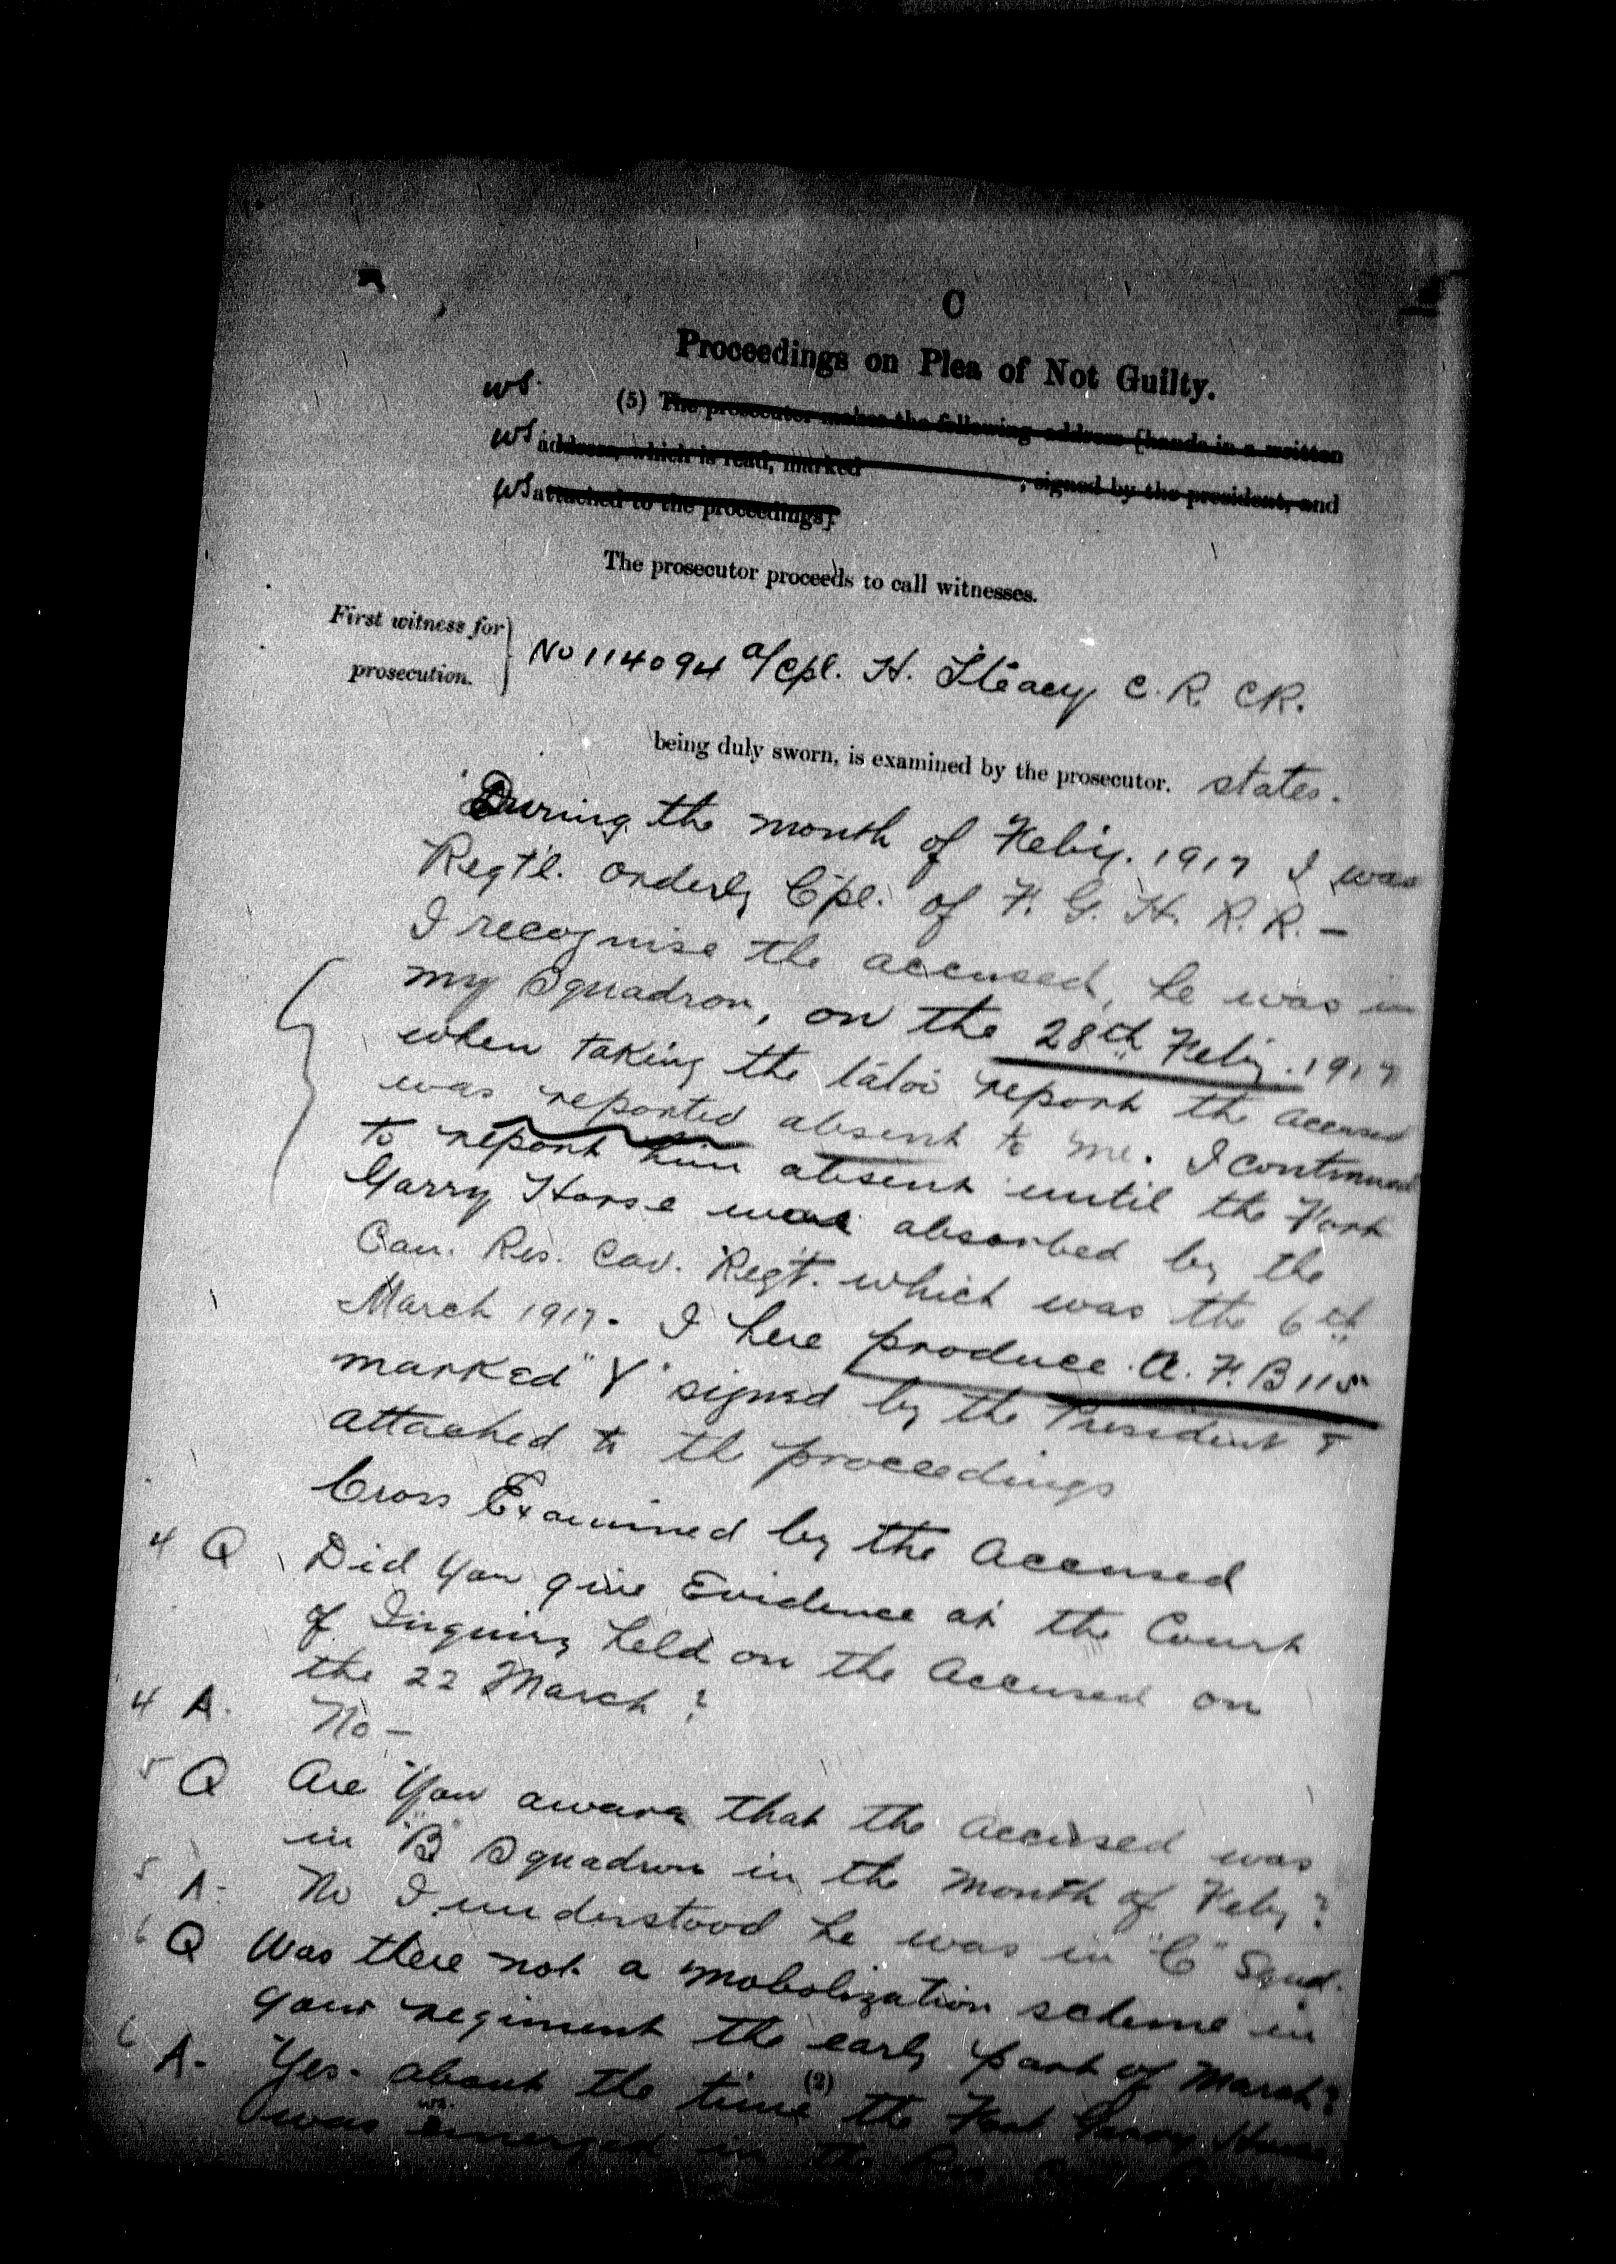 C
Proceedings on Plea of Not Guilty.
ws. (5) The prosecutor makes the following address [hands in a written
ws address, which is read, marked , signed by the president, and
ws attached to the proceedings].
The prosecutor proceeds to call witnesses.
First witness for
prosecution.
No 114094 a/Cpl. H. Steacy C. R. CR.
being duly sworn, is examined by the prosecutor. states.
During the month of Feby. 1917 I was
Regt'l. Orderly Cpl. of F. G. H. R. R. —
I recognise the accused, he was in
my Squadron, on the 28th Feby. 1917
when taking the report the accused
was reported absent to me. I continued
to report him absent until the Fort
Garry Horse were absorbed by the
Can. Res. Cav. Regt. which was the 6th
March 1917. I here produce A. F. B 115
marked "Y" signed by the President &
attached to the proceedings
Cross Examined by the Accused
4 Q Did you give Evidence at the Court
of Inquiry held on the Accused on
the 22 March?
4 A. No —
5 Q Are you aware that the accused was
in "B" Squadron in the month of Feby?
5 A- No I understood he was in "C" Squd.
6 Q Was there not a mobolization scheme in
your regiment the early part of March?
6 A- Yes. about the time the Fort Garry Horse
(2)
was ws. emerged in the Res.